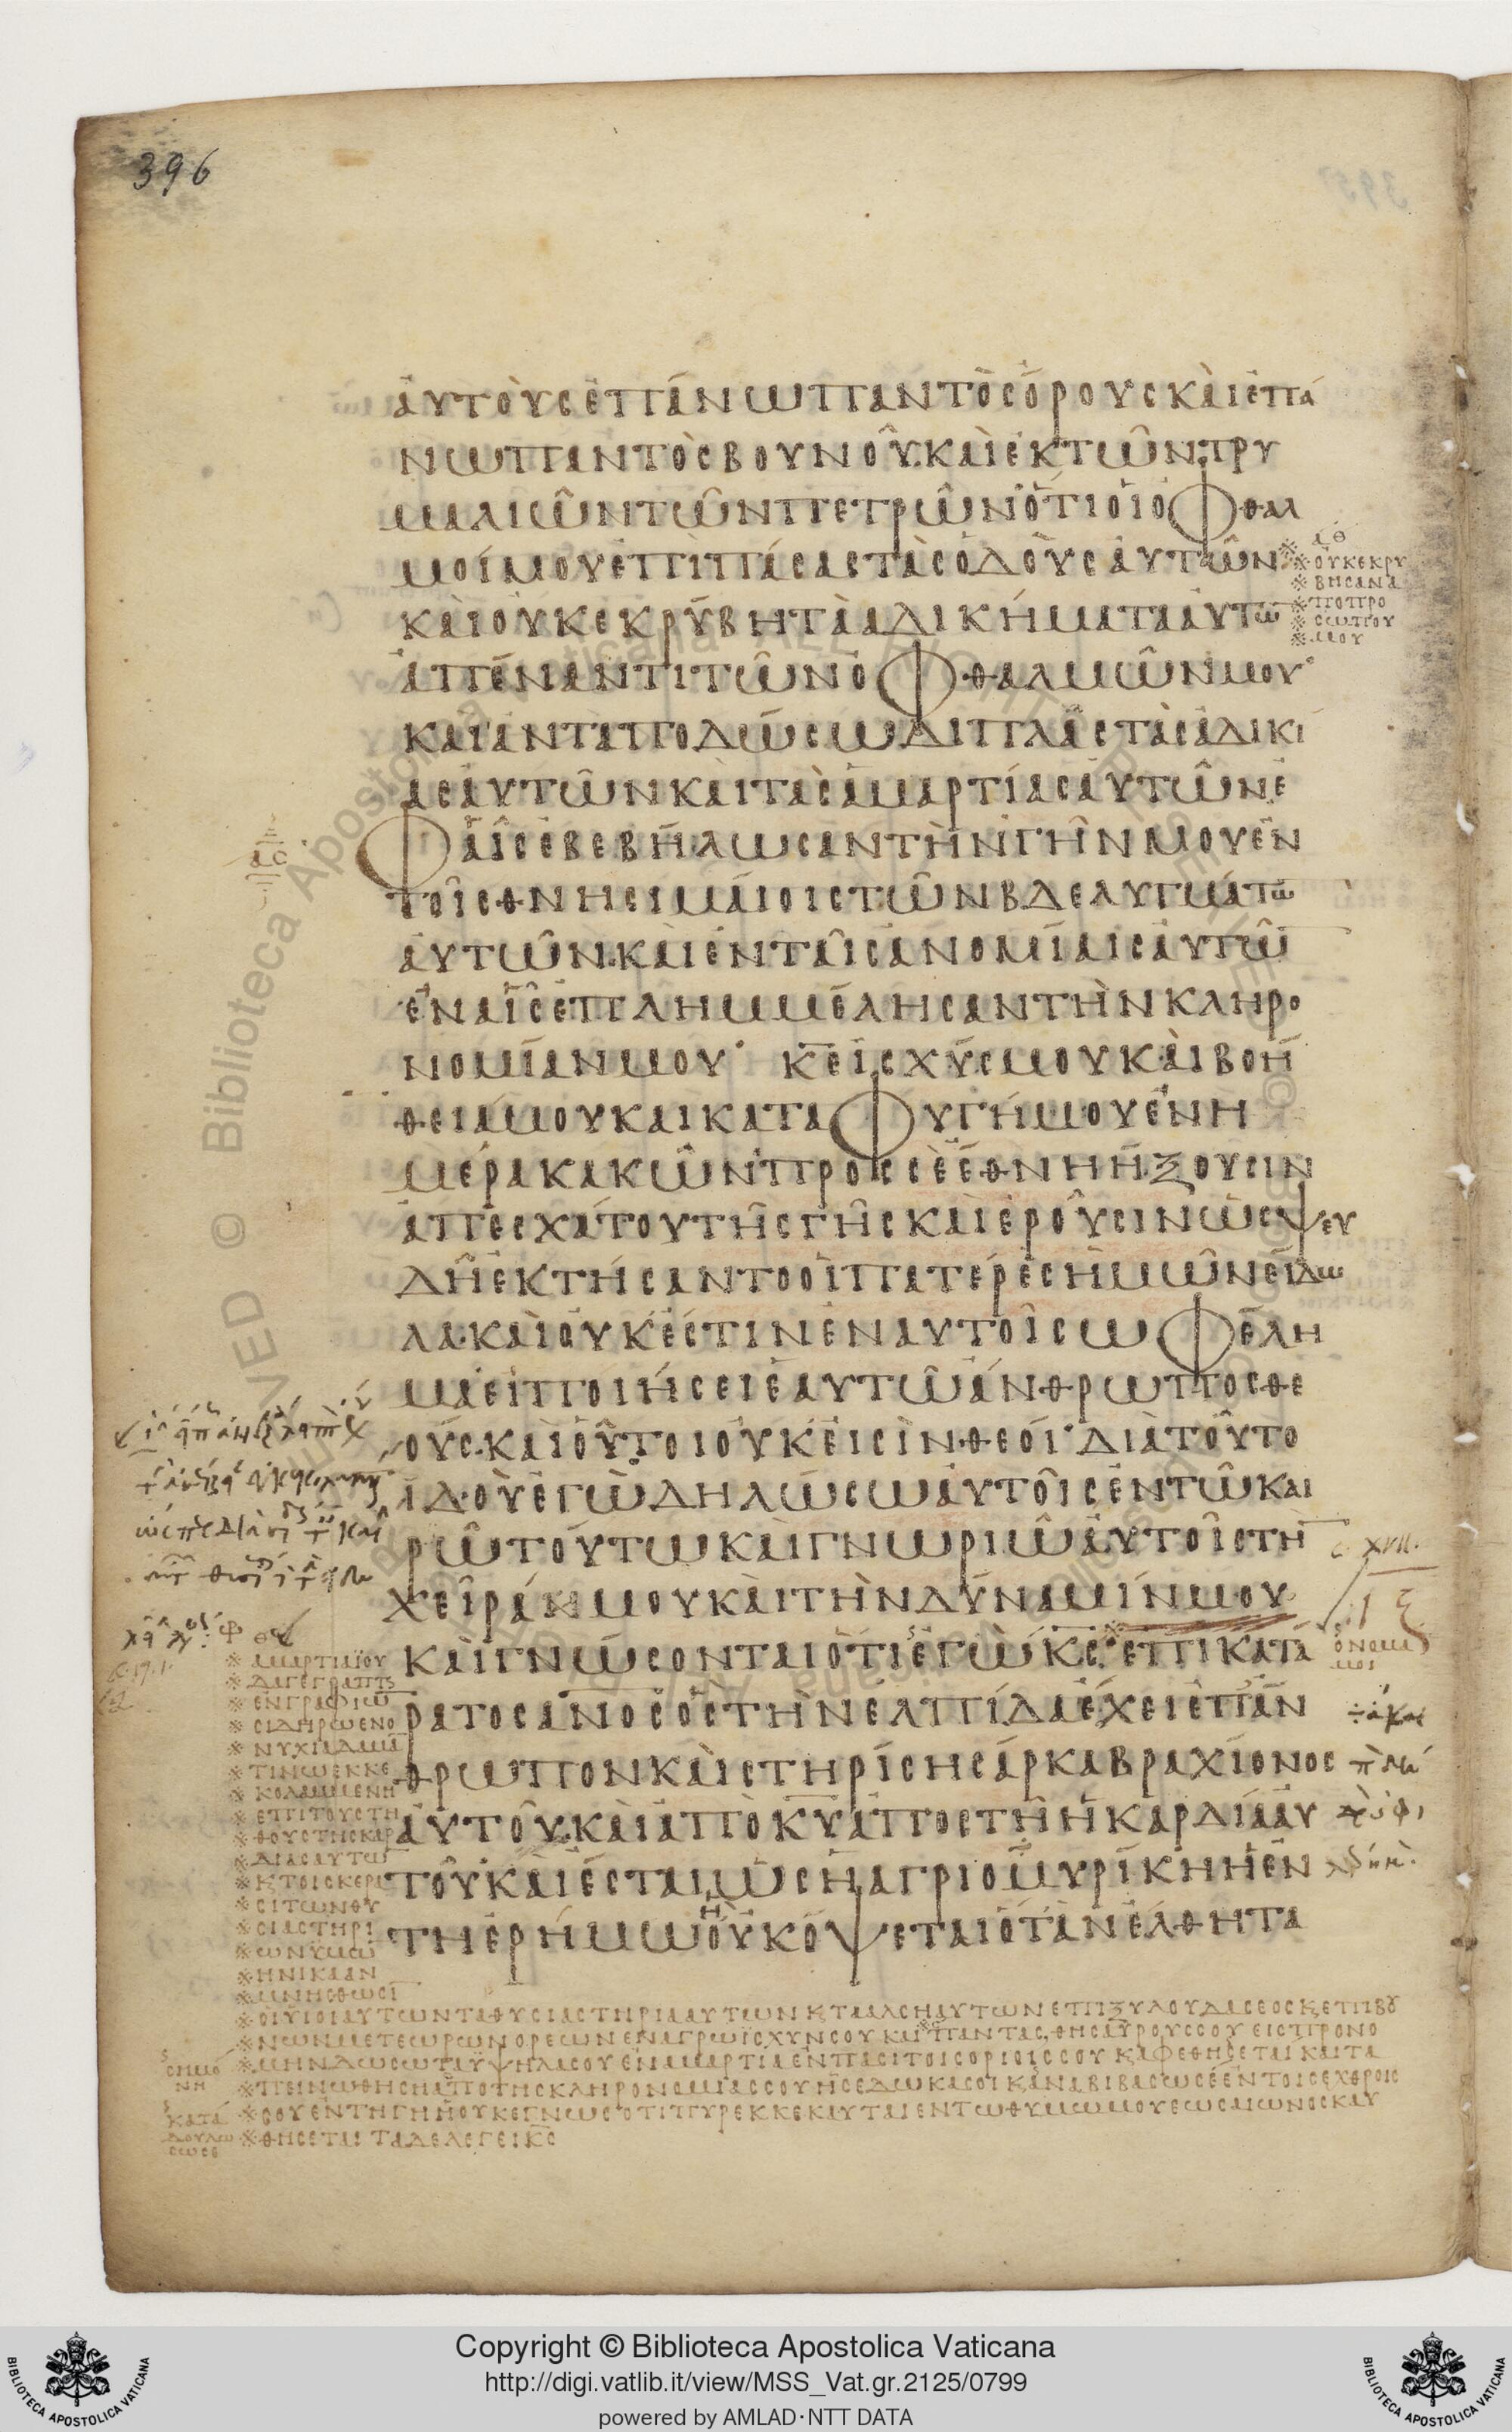 396
ἀυτοὺς ἐπάνω παντὸς ὄρους καὶ ἐπά
νω παντὸς βουνοῦ. καὶ ἐκ τῶν τρυ
μαλιῶν τῶν πετρῶν· ὅτι ὁι ὀφθαλ
μοί μου ἐπὶ πάσας τὰς ὁδοὺς ἀυτῶν
καὶ οὐκ εκρύβη τὰ αδικήματα ἀυτῶ̅
ἀπέναντι τῶν ὀφθαλμῶν μου·
καὶ ἀνταποδώσω διπλᾶς τὰς ἀδικί
ας ἀυτῶν καὶ τὰς ἁμαρτίας ἀυτῶν ἐ
φ αἷς ἐβεβήλωσαν τὴν γῆν μου ἐν
τοῖς θνησιμαίοις τῶν βδελυγμάτω̅
ἀυτῶν. καὶ ἐν ταῖς ἀνομίαις ἀυτῶ̅
ἐν αἷς ἐπλημμέλησαν τὴν κληρο
νομίαν μου· κ̅ε̅ ἰσχύς μου καὶ βοή
θειά μου καὶ καταφυγή μου ἐν ἡ
μέρα κακῶν· πρὸς σὲ ἔθνη ἥξουσιν
ἀπ ἐσχάτου τῆς γῆς καὶ ἐροῦσιν ὡς ψευ
δῆ ἐκτήσαντο ὁι πατέρες ἡμῶν εἴδω
λα. καὶ οὐκ ἔστιν ἐν αυτοῖς ωφέλη
μα εἰ ποιήσει ἑαυτῶ ἄνθρωπος θε
ούς. καὶ οὗτοι οὐκ εἰσὶν θεοί· διὰ τοῦτο
ἰδοὺ ἐγὼ δηλώσω ἀυτοῖς ἐν τῶ και
ρῶ τούτω καὶ γνωριῶ ἀυτοῖς τὴ̅
χεῖρά μου καὶ τὴν δύναμίν μου
καὶ γνώσονται ὅτι ἐγὼ κ̅ς̅· ἐπικατά
ρατος α̅ν̅ο̅ς̅ ὃς τὴν ἐλπίδα ἔχει ἐπ ἄν
θρωπον καὶ στηρίση σάρκα βραχίονος
ἀυτοῦ. καὶ ἀπὸ κ̅υ̅ ἀποστῆ ἡ καρδία αυ
τοῦ· καὶ ἔσται ὡς ἡ αγριομυρίκη ἡ ἐν
τῆ ἐρήμω οὐκ ὄψεται ὅταν ἔλθη τα
※ ὀυκ εκρυ
※ βησαν ἀ
※ πο προ
※ σωπου
※ μου
c. XVII.
ιζ
※ αμαρτια ϊου
※ δα γεγραπτ
※ εν γραφιω
※ σιδηρω εν ο
※ νυχι αδαμ̅
※ τινω εκκε
※ κολαμμενη
※ επι του στη
※ θους της καρ
※ διας αυτω̅
※ κ τοις κερ
※ σι των θυ
※ σιαστηρι
※ ων υμω̅
※ ηνικα αν
※ μνησθωσι
※ οι υιοι αυτων τα θυσιαστηρια αυτων κ τα αλση αυτων επι ξυλου δασεος κ επι βου
※ νων μετεωρων ορεων εν αγρω ισχυν σου και παντας θησαυρους σου εις προνο
※ μην δωσω τα υψηλα σου εν αμαρτια εν πασι τοις οριοις σου κ αφεθησεται και τα
※ πεινωθηση απο της κληρονομιας σου ης εδωκα σοι κ αναβιβασω σε εν τοις εχθροις
※ σου εν τη γη η ουκ εγνως οτι πυρ εκκεκαυται εν τω θυμω μου εως αιωνος καυ
※ θησεται ταδε λεγει κ̅ς̅
Copyright © Biblioteca Apostolica Vaticana
http://digi.vatlib.it/view/MSS_Vat.gr.2125/0799
powered by AMLAD·NTT DATA
BIBLIOTECA APOSTOLICA VATICANA
BIBLIOTECA APOSTOLICA VATICANA